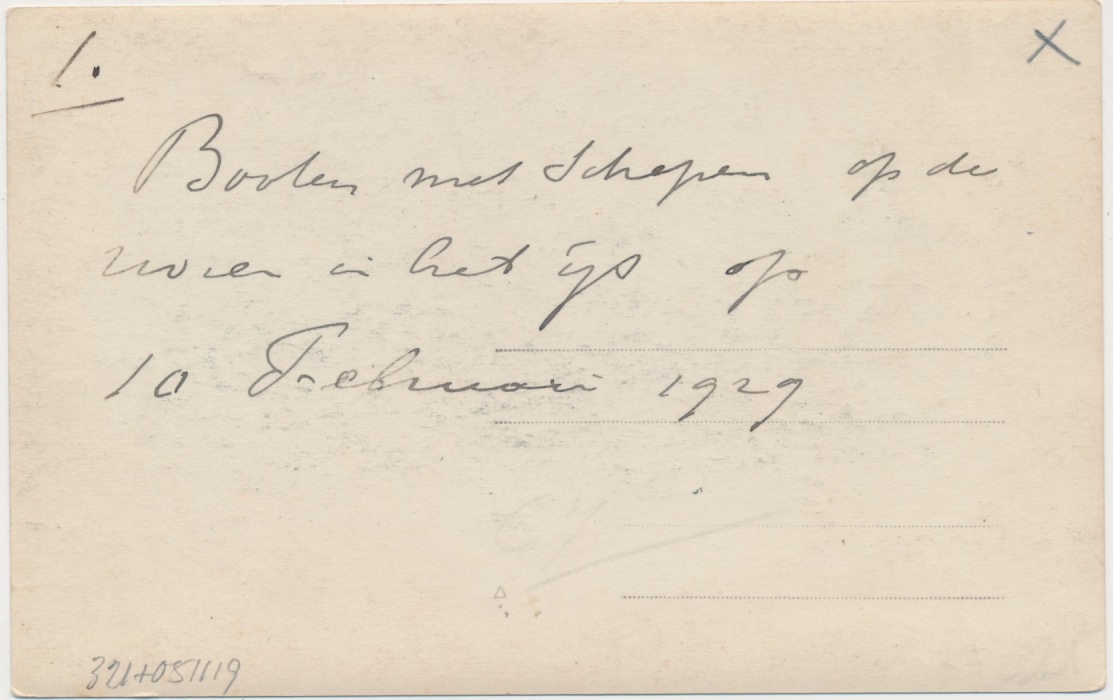 1.
Booten met Schepen op de
rivier in het ijs op
10 Februari 1929
321+051119